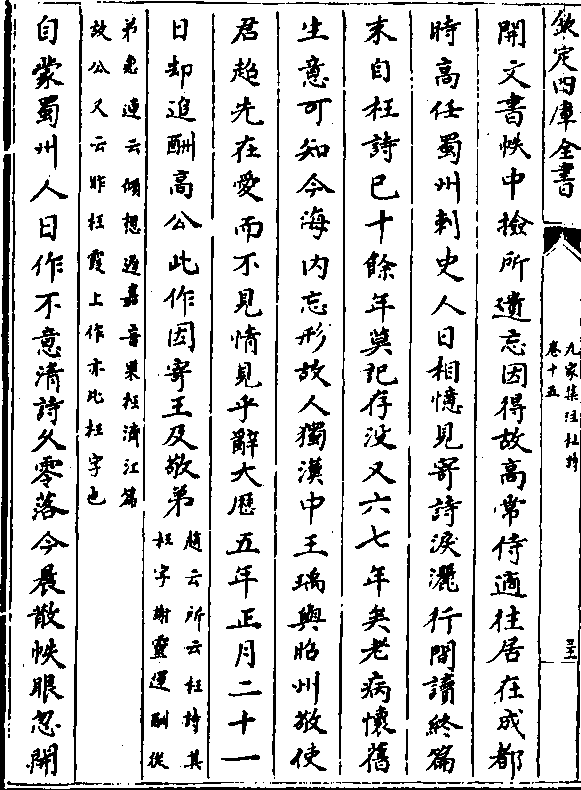 欽定四庫全書
九家集注杜詩
卷十五
開文書帙中撿所遺忘因得故高常侍適往居在成都
時高任蜀州刺史人日相憶見寄詩淚灑行間讀終篇
末自枉詩已十餘年莫記存沒又六七年矣老病懷舊
生意可知今海內忘形故人獨漢中王瑀與昭州敬使
君超先在愛而不見情見乎辭大歷五年正月二十一
日却追酬高公此作因寄王及敬弟
趙云所云枉詩其
枉字謝靈運酬從
弟惠連云傾想遲嘉音果枉濟江篇
故公又云昨枉霞上作亦此枉字也
自蒙蜀州人日作不意清詩久零落今晨散帙眼忽開